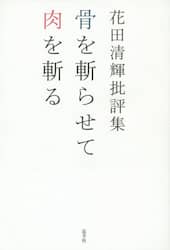 花田清輝批評集
骨を斬らせて
肉を斬る